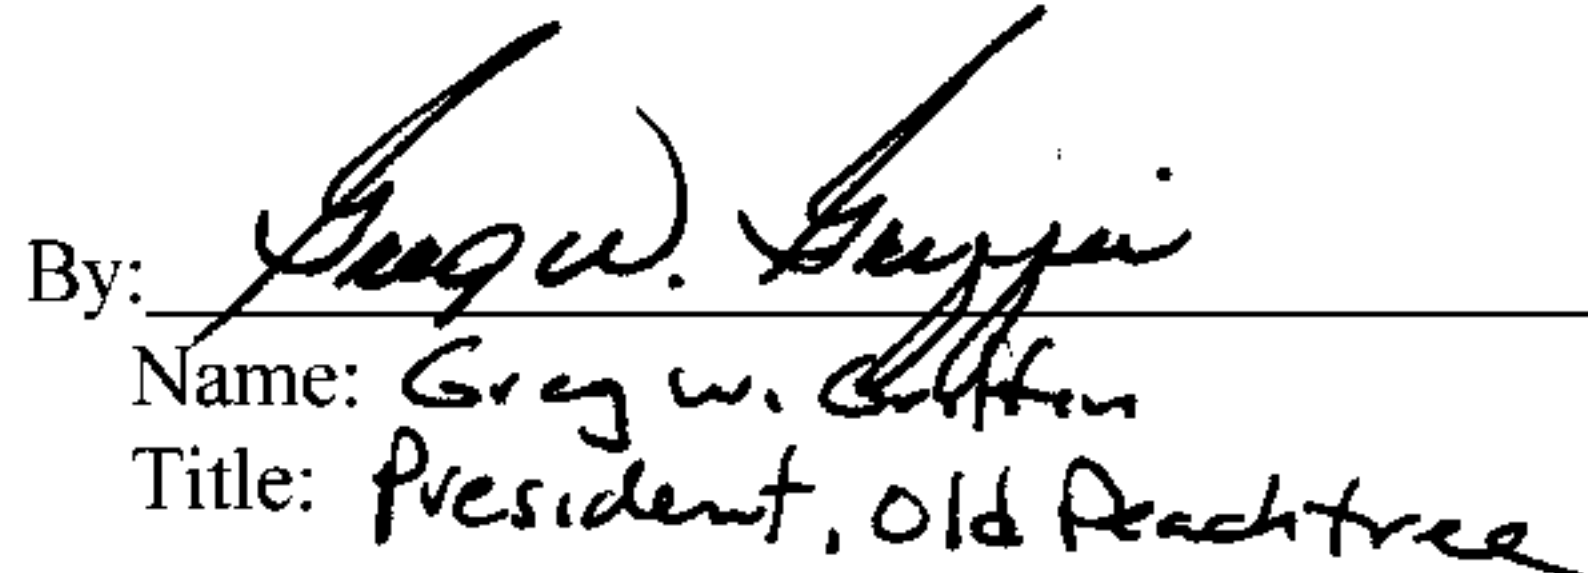 By: Greg W. Griffin
Name: Greg W. Griffin
Title: President, Old Peachtree